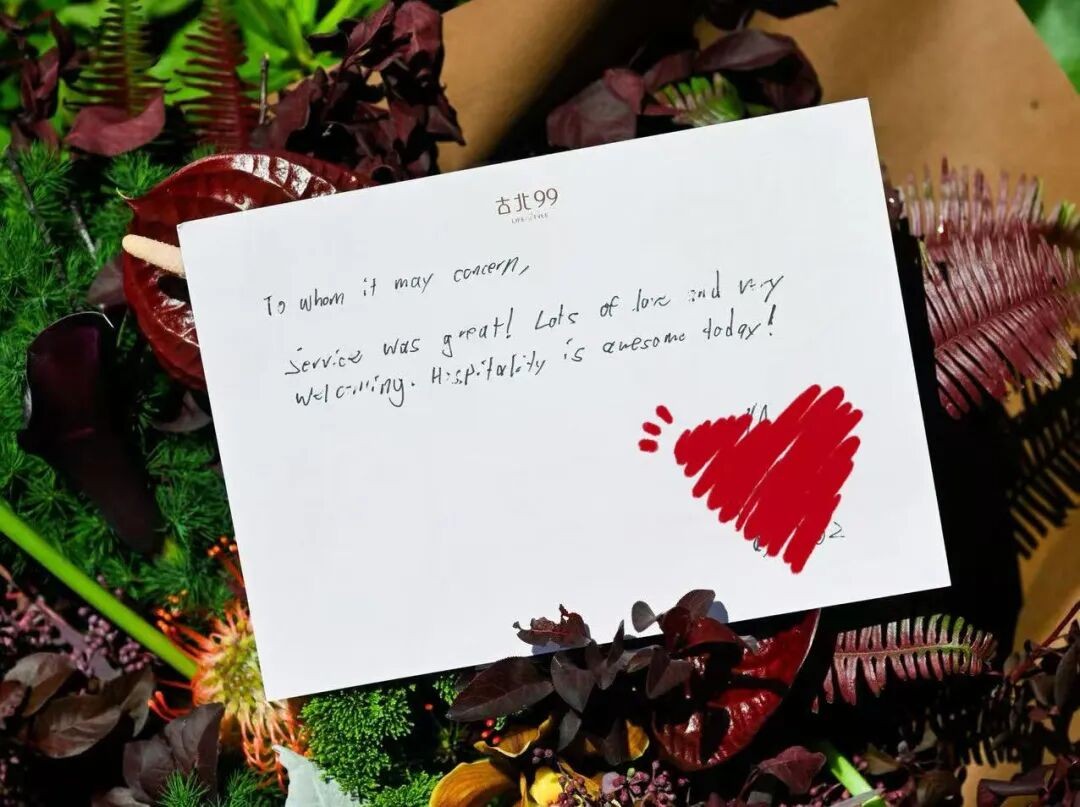 古北99
LIFE STYLE
To whom it may concern,
Service was great! Lots of love and very
welcoming. Hospitality is awesome today!